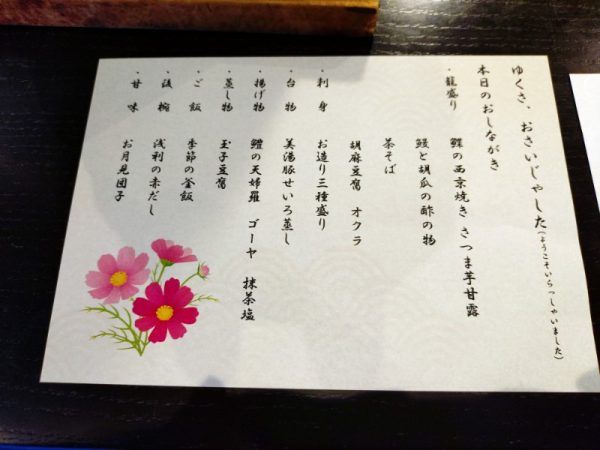 ゆくさ、おさいじゃした(ようこそいらっしゃいました)
本日のおしながき
・籠盛り 鰈の西京焼き さつま芋甘露
鰻と胡瓜の酢の物
茶そば
胡麻豆腐 オクラ
・刺身 お造り三種盛り
・台物 美湯豚せいろ蒸し
・揚げ物 鱧の天婦羅 ゴーヤ 抹茶塩
・蒸し物 玉子豆腐
・ご飯 季節の釜飯
・後椀 浅利の赤だし
・甘味 お月見団子